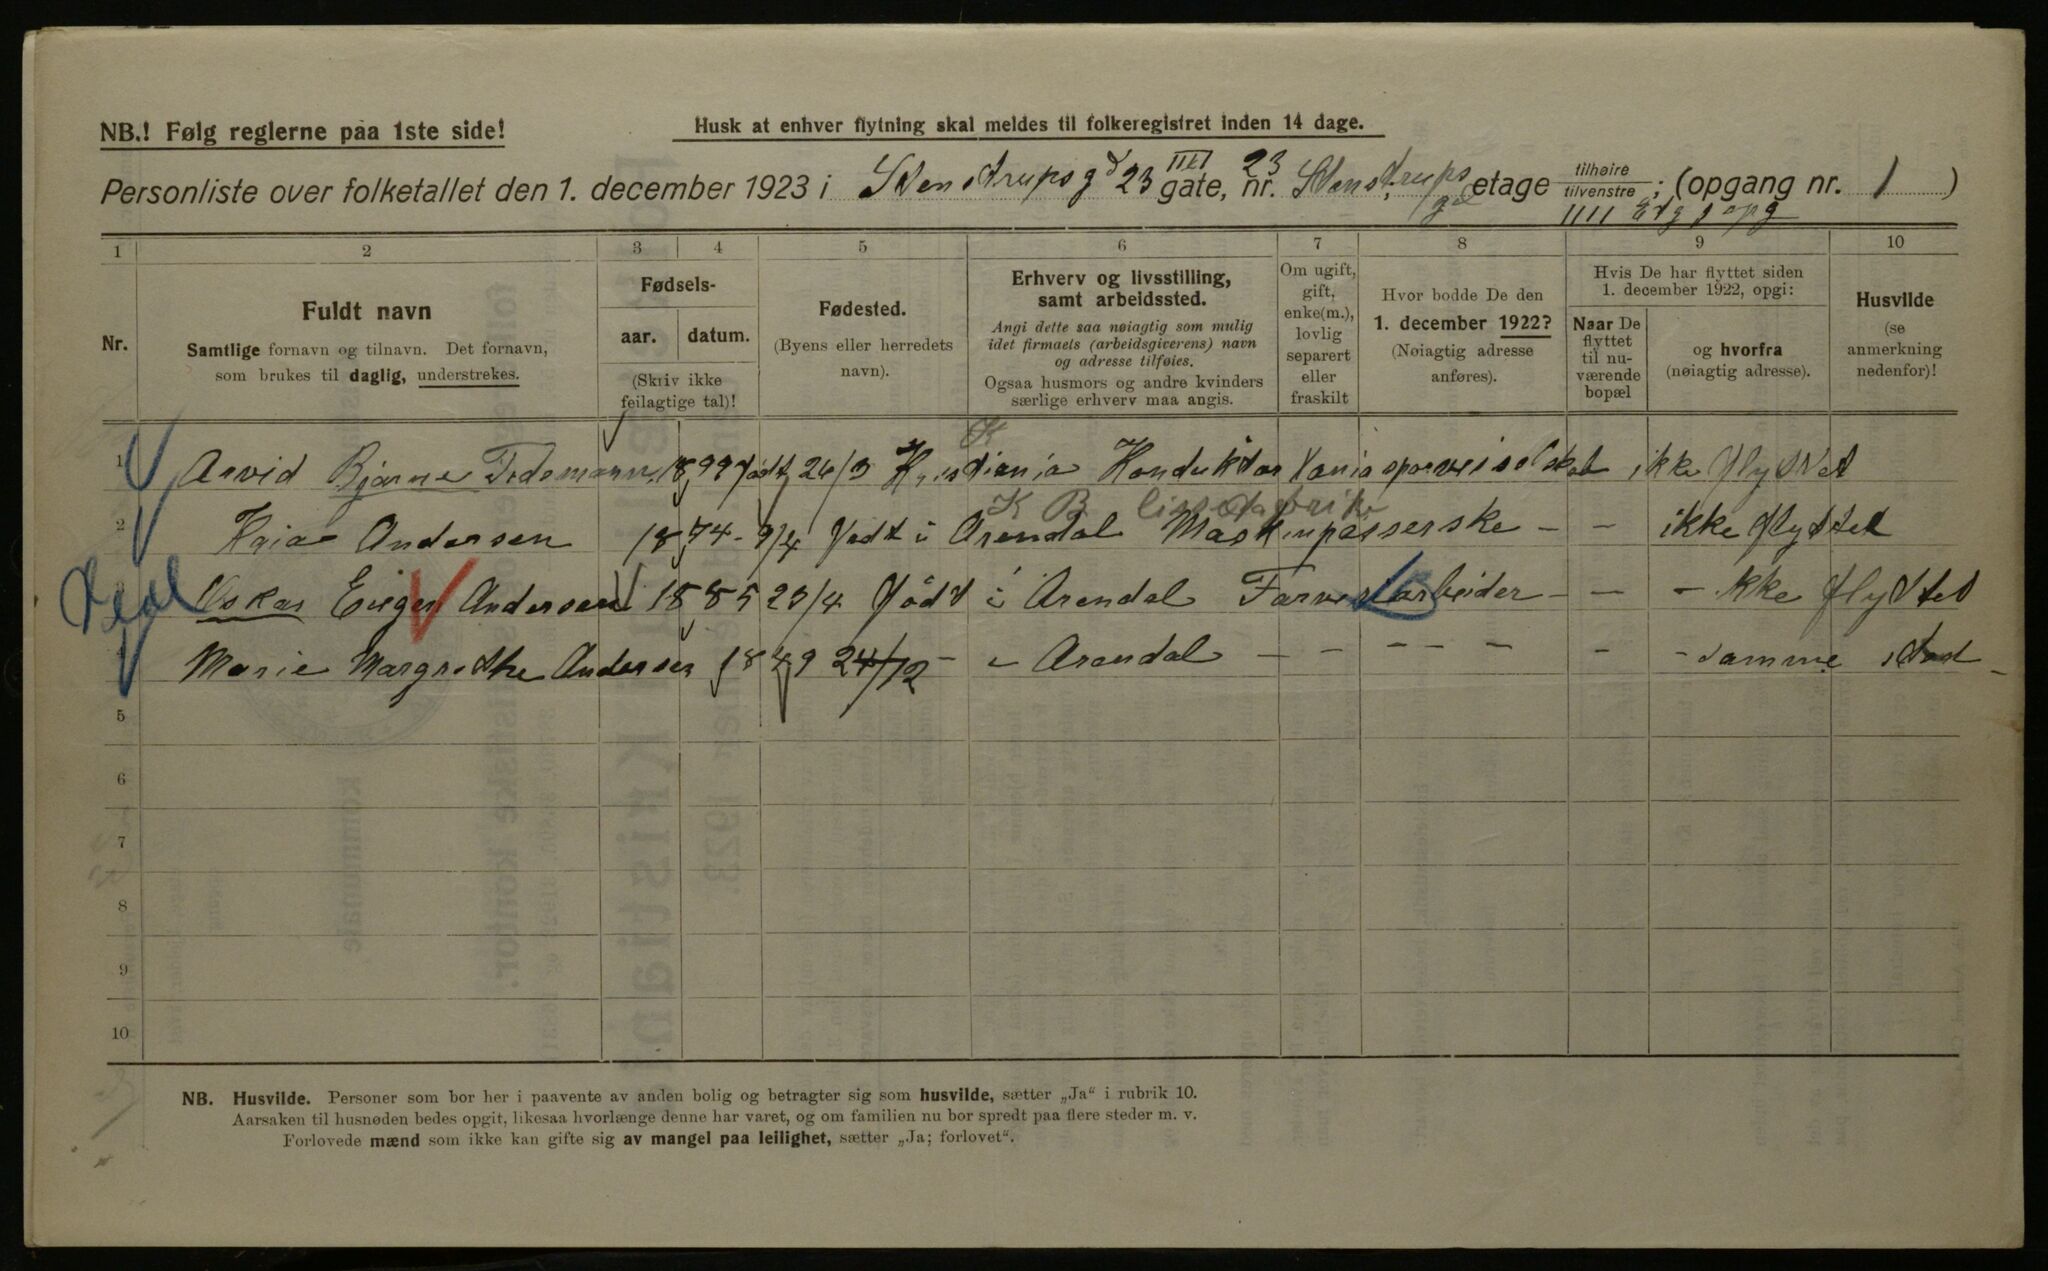 NB.! Følg reglerne paa 1ste side!
Husk at enhver flytning skal meldes til folkeregistret inden 14 dage.
Personliste over folketallet den 1. december 1923 i Stenstrups gd 23 III gate, nr. 23 Stenstrups gd etage tilhøire tilvenstre; (opgang nr. 1)
1111 Etg 1 opg
1 2 3 4 5 6 7 8 9 10
Nr.
Fuldt navn
Samtlige fornavn og tilnavn. Det fornavn,
som brukes til daglig, understrekes.
Fødsels-
aar. datum.
(Skriv ikke
feilagtige tal)!
Fødested.
(Byens eller herredets
navn).
Erhverv og livsstilling,
samt arbeidssted.
Angi dette saa nøiagtig som mulig
idet firmaets (arbeidsgiverens) navn
og adresse tilføies.
Ogsaa husmors og andre kvinders
særlige erhverv maa angis.
Om ugift,
gift,
enke(m.),
lovlig
separert
eller
fraskilt
Hvor bodde De den
1. december 1922?
(Nøiagtig adresse
anføres).
Hvis De har flyttet siden
1. december 1922, opgi:
Naar De
flyttet
til nu-
værende
bopæl
og hvorfra
(nøiagtig adresse).
Husvilde
(se
anmerkning
nedenfor)!
K
1 Arvid Bjarne Tidemann 1899 født 26/3 Kristiania Konduktør Kania sporveisselskab ikke flyttet
K B
2 Kaia Andersen 1874 - 9/4 født i Arendal Maskinpasserske - - ikke flyttet
3 Oskar Andersen 1885 23/4 född i Arendal Farveriarbeider - - - ikke flyttet
4 Marie Margrethe Andersen 1849 24/12 - - Arendal - - - - - - - samme sted -
5
6
7
8
9
10
NB. Husvilde. Personer som bor her i paavente av anden bolig og betragter sig som husvilde, sætter „Ja“ i rubrik 10.
Aarsaken til husnøden bedes opgit, likesaa hvorlænge denne har varet, og om familien nu bor spredt paa flere steder m. v.
Forlovede mænd som ikke kan gifte sig av mangel paa leilighet, sætter „Ja; forlovet“.